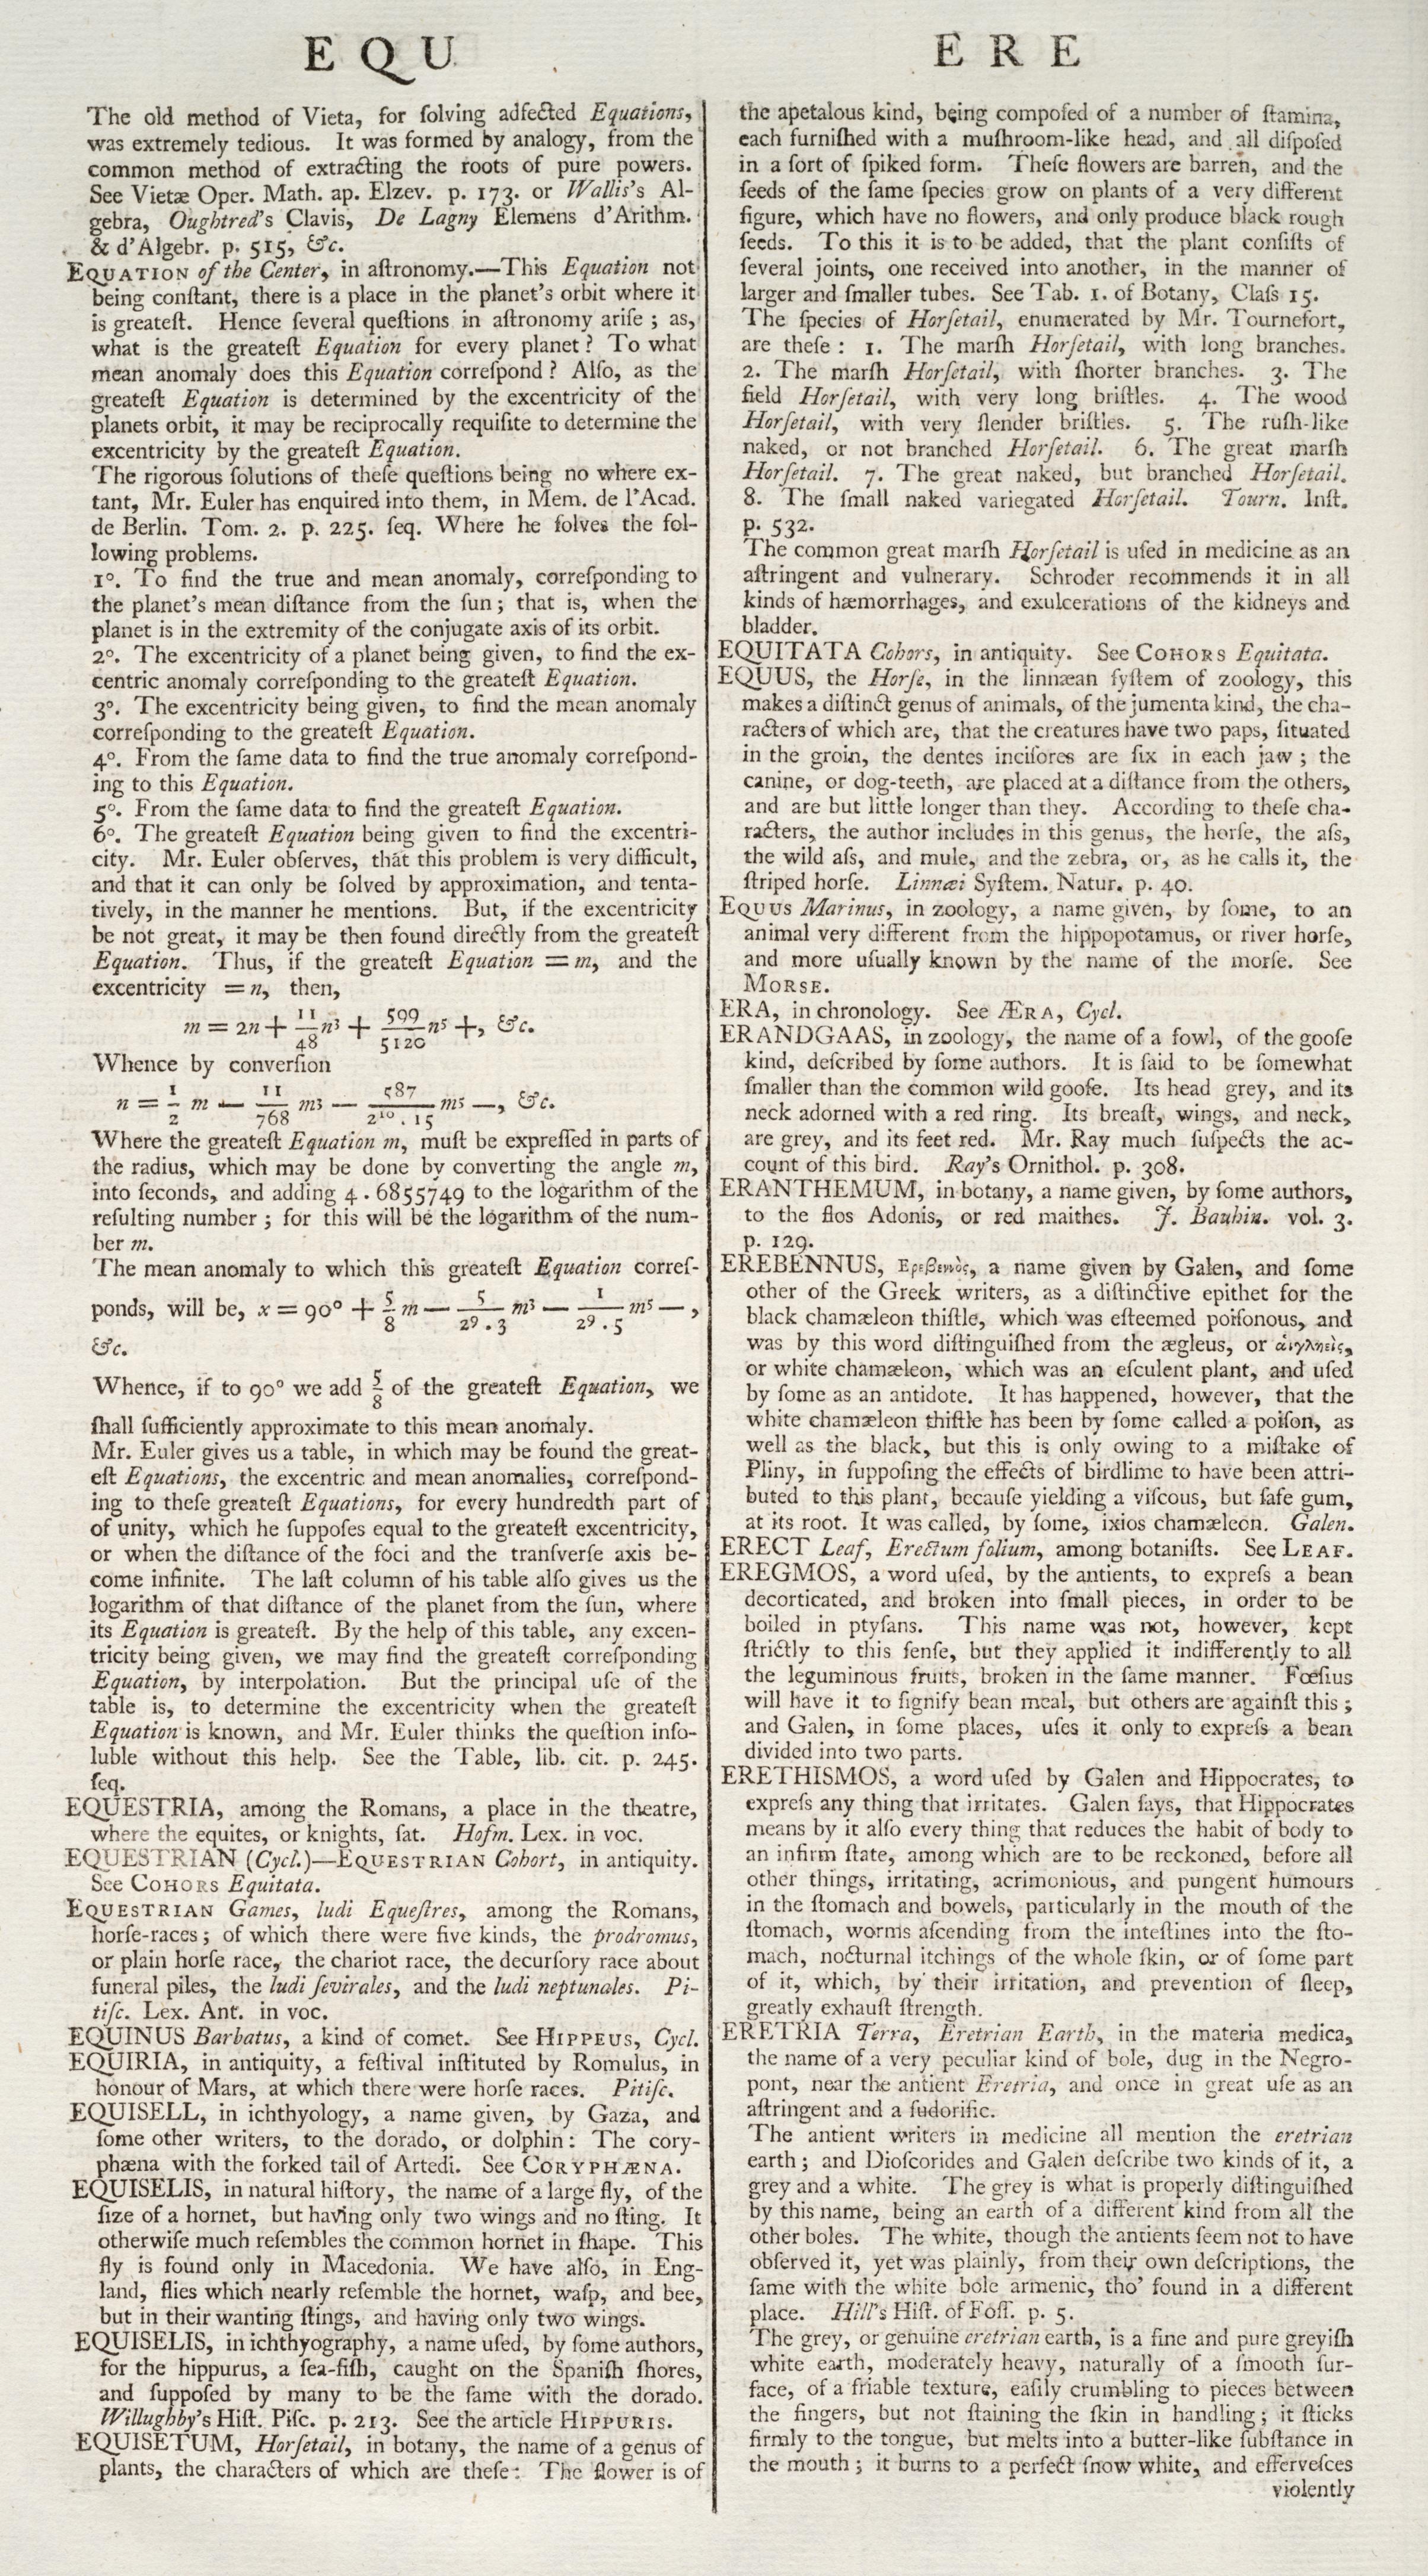 EQU
The old method of Vieta, for ſolving adfected Equations,
was extremely tedious. It was formed by analogy, from the
common method of extracting the roots of pure powers.
See Vietæ Oper. Math. ap. Elzev. p. 173. or Wallis's Al-
gebra, Oughtred's Clavis, De Lagny Elemens d'Arithm.
& d'Algebr. p. 515, &c.
EQUATION of the Center, in aſtronomy.—This Equation not
being conſtant, there is a place in the planet's orbit where it
is greateſt. Hence ſeveral queſtions in aſtronomy ariſe; as,
what is the greateſt Equation for every planet? To what
mean anomaly does this Equation correſpond? Alſo, as the
greateſt Equation is determined by the excentricity of the
planets orbit, it may be reciprocally requiſite to determine the
excentricity by the greateſt Equation.
The rigorous ſolutions of theſe queſtions being no where ex-
tant, Mr. Euler has enquired into them, in Mem. de l'Acad.
de Berlin. Tom. 2. p. 225. ſeq. Where he ſolves the fol-
lowing problems.
1°. To find the true and mean anomaly, correſponding to
the planet's mean diſtance from the ſun; that is, when the
planet is in the extremity of the conjugate axis of its orbit.
2°. The excentricity of a planet being given, to find the ex-
centric anomaly correſponding to the greateſt Equation.
3°. The excentricity being given, to find the mean anomaly
correſponding to the greateſt Equation.
4°. From the ſame data to find the true anomaly correſpond-
ing to this Equation.
5°. From the ſame data to find the greateſt Equation.
6°. The greateſt Equation being given to find the excentri-
city. Mr. Euler obſerves, that this problem is very difficult,
and that it can only be ſolved by approximation, and tenta-
tively, in the manner he mentions. But, if the excentricity
be not great, it may be then found directly from the greateſt
Equation. Thus, if the greateſt Equation = m, and the
excentricity = n, then,
m = 2n + 11/48 n³ + 599/5120 n⁵ +, &c.
Whence by converſion
n = 1/2 m — 11/768 m³ — 587/2¹⁰.15 m⁵ —, &c.
Where the greateſt Equation m, muſt be expreſſed in parts of
the radius, which may be done by converting the angle m,
into ſeconds, and adding 4.6855749 to the logarithm of the
reſulting number; for this will be the logarithm of the num-
ber m.
The mean anomaly to which this greateſt Equation correſ-
ponds, will be, x = 90° + 5/8 m — 5/2⁹.3 m³ — 1/2⁹.5 m⁵ —,
&c.
Whence, if to 90° we add 5/8 of the greateſt Equation, we
ſhall ſufficiently approximate to this mean anomaly.
Mr. Euler gives us a table, in which may be found the great-
eſt Equations, the excentric and mean anomalies, correſpond-
ing to theſe greateſt Equations, for every hundredth part of
of unity, which he ſuppoſes equal to the greateſt excentricity,
or when the diſtance of the foci and the tranſverſe axis be-
come infinite. The laſt column of his table alſo gives us the
logarithm of that diſtance of the planet from the ſun, where
its Equation is greateſt. By the help of this table, any excen-
tricity being given, we may find the greateſt correſponding
Equation, by interpolation. But the principal uſe of the
table is, to determine the excentricity when the greateſt
Equation is known, and Mr. Euler thinks the queſtion inſo-
luble without this help. See the Table, lib. cit. p. 245.
ſeq.
EQUESTRIA, among the Romans, a place in the theatre,
where the equites, or knights, ſat. Hofm. Lex. in voc.
EQUESTRIAN (Cycl.)—EQUESTRIAN Cohort, in antiquity.
See COHORS Equitata.
EQUESTRIAN Games, ludi Equeſtres, among the Romans,
horſe-races; of which there were five kinds, the prodromus,
or plain horſe race, the chariot race, the decurſory race about
funeral piles, the ludi ſevirales, and the ludi neptunales. Pi-
tiſc. Lex. Ant. in voc.
EQUINUS Barbatus, a kind of comet. See HIPPEUS, Cycl.
EQUIRIA, in antiquity, a feſtival inſtituted by Romulus, in
honour of Mars, at which there were horſe races. Pitiſc.
EQUISELL, in ichthyology, a name given, by Gaza, and
ſome other writers, to the dorado, or dolphin: The cory-
phæna with the forked tail of Artedi. See CORYPHÆNA.
EQUISELIS, in natural hiſtory, the name of a large fly, of the
ſize of a hornet, but having only two wings and no ſting. It
otherwiſe much reſembles the common hornet in ſhape. This
fly is found only in Macedonia. We have alſo, in Eng-
land, flies which nearly reſemble the hornet, waſp, and bee,
but in their wanting ſtings, and having only two wings.
EQUISELIS, in ichthyography, a name uſed, by ſome authors,
for the hippurus, a ſea-fiſh, caught on the Spaniſh ſhores,
and ſuppoſed by many to be the ſame with the dorado.
Willughby's Hiſt. Piſc. p. 213. See the article HIPPURIS.
EQUISETUM, Horſetail, in botany, the name of a genus of
plants, the characters of which are theſe: The flower is of
ERE
the apetalous kind, being compoſed of a number of ſtamina,
each furniſhed with a muſhroom-like head, and all diſpoſed
in a ſort of ſpiked form. Theſe flowers are barren, and the
ſeeds of the ſame ſpecies grow on plants of a very different
figure, which have no flowers, and only produce black rough
ſeeds. To this it is to be added, that the plant conſiſts of
ſeveral joints, one received into another, in the manner of
larger and ſmaller tubes. See Tab. 1. of Botany, Claſs 15.
The ſpecies of Horſetail, enumerated by Mr. Tournefort,
are theſe: 1. The marſh Horſetail, with long branches.
2. The marſh Horſetail, with ſhorter branches. 3. The
field Horſetail, with very long briſtles. 4. The wood
Horſetail, with very ſlender briſtles. 5. The ruſh-like
naked, or not branched Horſetail. 6. The great marſh
Horſetail. 7. The great naked, but branched Horſetail.
8. The ſmall naked variegated Horſetail. Tourn. Inſt.
p. 532.
The common great marſh Horſetail is uſed in medicine as an
aſtringent and vulnerary. Schroder recommends it in all
kinds of hæmorrhages, and exulcerations of the kidneys and
bladder.
EQUITATA Cohors, in antiquity. See COHORS Equitata.
EQUUS, the Horſe, in the linnæan ſyſtem of zoology, this
makes a diſtinct genus of animals, of the jumenta kind, the cha-
racters of which are, that the creatures have two paps, ſituated
in the groin, the dentes inciſores are ſix in each jaw; the
canine, or dog-teeth, are placed at a diſtance from the others,
and are but little longer than they. According to theſe cha-
racters, the author includes in this genus, the horſe, the aſs,
the wild aſs, and mule, and the zebra, or, as he calls it, the
ſtriped horſe. Linnæi Syſtem. Natur. p. 40.
EQUUS Marinus, in zoology, a name given, by ſome, to an
animal very different from the hippopotamus, or river horſe,
and more uſually known by the name of the morſe. See
MORSE.
ERA, in chronology. See ÆRA, Cycl.
ERANDGAAS, in zoology, the name of a fowl, of the gooſe
kind, deſcribed by ſome authors. It is ſaid to be ſomewhat
ſmaller than the common wild gooſe. Its head grey, and its
neck adorned with a red ring. Its breaſt, wings, and neck,
are grey, and its feet red. Mr. Ray much ſuſpects the ac-
count of this bird. Ray's Ornithol. p. 308.
ERANTHEMUM, in botany, a name given, by ſome authors,
to the flos Adonis, or red maithes. J. Bauhin. vol. 3.
p. 129.
EREBENNUS, Ερεβεννὸς, a name given by Galen, and ſome
other of the Greek writers, as a diſtinctive epithet for the
black chamæleon thiſtle, which was eſteemed poiſonous, and
was by this word diſtinguiſhed from the ægleus, or ἀιγληεὶς,
or white chamæleon, which was an eſculent plant, and uſed
by ſome as an antidote. It has happened, however, that the
white chamæleon thiſtle has been by ſome called a poiſon, as
well as the black, but this is only owing to a miſtake of
Pliny, in ſuppoſing the effects of birdlime to have been attri-
buted to this plant, becauſe yielding a viſcous, but ſafe gum,
at its root. It was called, by ſome, ixios chamæleon. Galen.
ERECT Leaf, Erectum folium, among botaniſts. See LEAF.
EREGMOS, a word uſed, by the antients, to expreſs a bean
decorticated, and broken into ſmall pieces, in order to be
boiled in ptyſans. This name was not, however, kept
ſtrictly to this ſenſe, but they applied it indifferently to all
the leguminous fruits, broken in the ſame manner. Fœſius
will have it to ſignify bean meal, but others are againſt this;
and Galen, in ſome places, uſes it only to expreſs a bean
divided into two parts.
ERETHISMOS, a word uſed by Galen and Hippocrates, to
expreſs any thing that irritates. Galen ſays, that Hippocrates
means by it alſo every thing that reduces the habit of body to
an infirm ſtate, among which are to be reckoned, before all
other things, irritating, acrimonious, and pungent humours
in the ſtomach and bowels, particularly in the mouth of the
ſtomach, worms aſcending from the inteſtines into the ſto-
mach, nocturnal itchings of the whole ſkin, or of ſome part
of it, which, by their irritation, and prevention of ſleep,
greatly exhauſt ſtrength.
ERETRIA Terra, Eretrian Earth, in the materia medica,
the name of a very peculiar kind of bole, dug in the Negro-
pont, near the antient Eretria, and once in great uſe as an
aſtringent and a ſudorific.
The antient writers in medicine all mention the eretrian
earth; and Dioſcorides and Galen deſcribe two kinds of it, a
grey and a white. The grey is what is properly diſtinguiſhed
by this name, being an earth of a different kind from all the
other boles. The white, though the antients ſeem not to have
obſerved it, yet was plainly, from their own deſcriptions, the
ſame with the white bole armenic, tho' found in a different
place. Hill's Hiſt. of Foſſ. p. 5.
The grey, or genuine eretrian earth, is a fine and pure greyiſh
white earth, moderately heavy, naturally of a ſmooth ſur-
face, of a friable texture, eaſily crumbling to pieces between
the fingers, but not ſtaining the ſkin in handling; it ſticks
firmly to the tongue, but melts into a butter-like ſubſtance in
the mouth; it burns to a perfect ſnow white, and efferveſces
violently